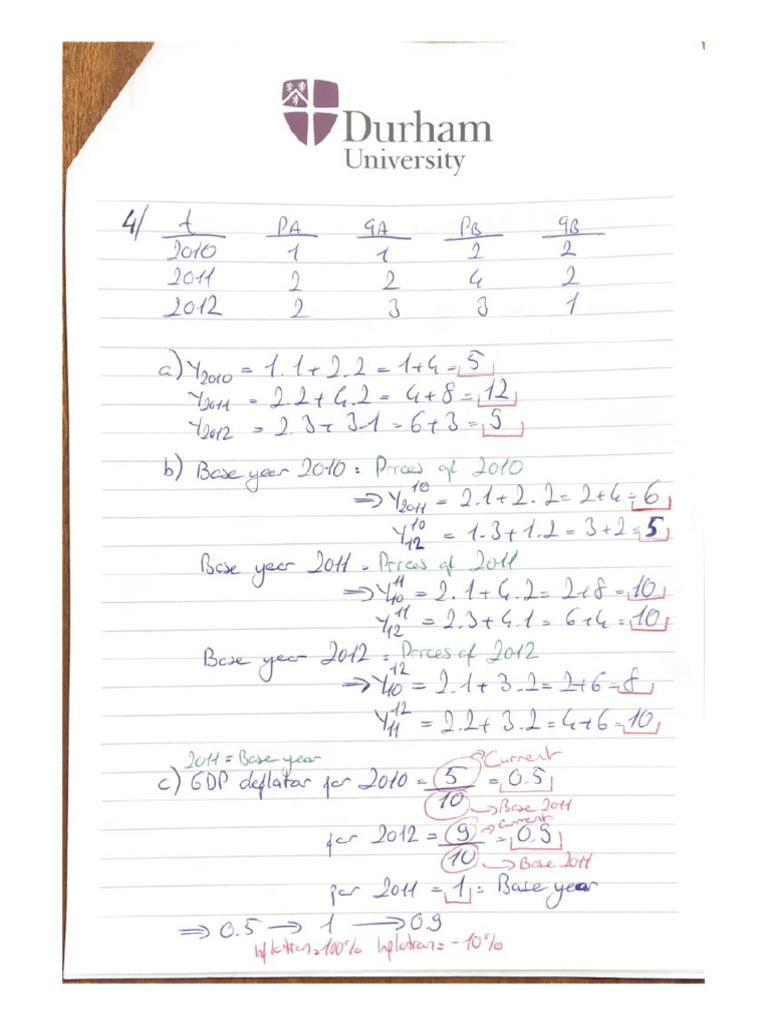 Durham
University
4/ t PA qA PB qB
2010 1 1 2 2
2011 2 2 4 2
2012 2 3 3 1
a) Y2010 = 1.1 + 2.2 = 1+4 = 5
Y2011 = 2.2 + 4.2 = 4+8 = 12
Y2012 = 2.3 + 3.1 = 6+3 = 9
b) Base year 2010 = Prices of 2010
⇒ Y2011^10 = 2.1 + 2.2 = 2+4 = 6
Y12^10 = 1.3 + 1.2 = 3+2 = 5
Base year 2011 = Prices of 2011
⇒ Y10^11 = 2.1 + 4.2 = 2+8 = 10
Y12^11 = 2.3 + 4.1 = 6+4 = 10
Base year 2012 = Prices of 2012
⇒ Y10^12 = 2.1 + 3.2 = 2+6 = 8
Y11^12 = 2.2 + 3.2 = 4+6 = 10
2011 = Base year
c) GDP deflator for 2010 = 5/10 = 0.5
→ Current
→ Base 2011
for 2012 = 9/10 = 0.9
→ Current
→ Base 2011
for 2011 = 1 = Base year
⇒ 0.5 → 1 → 0.9
Inflation = 100% Inflation = -10%